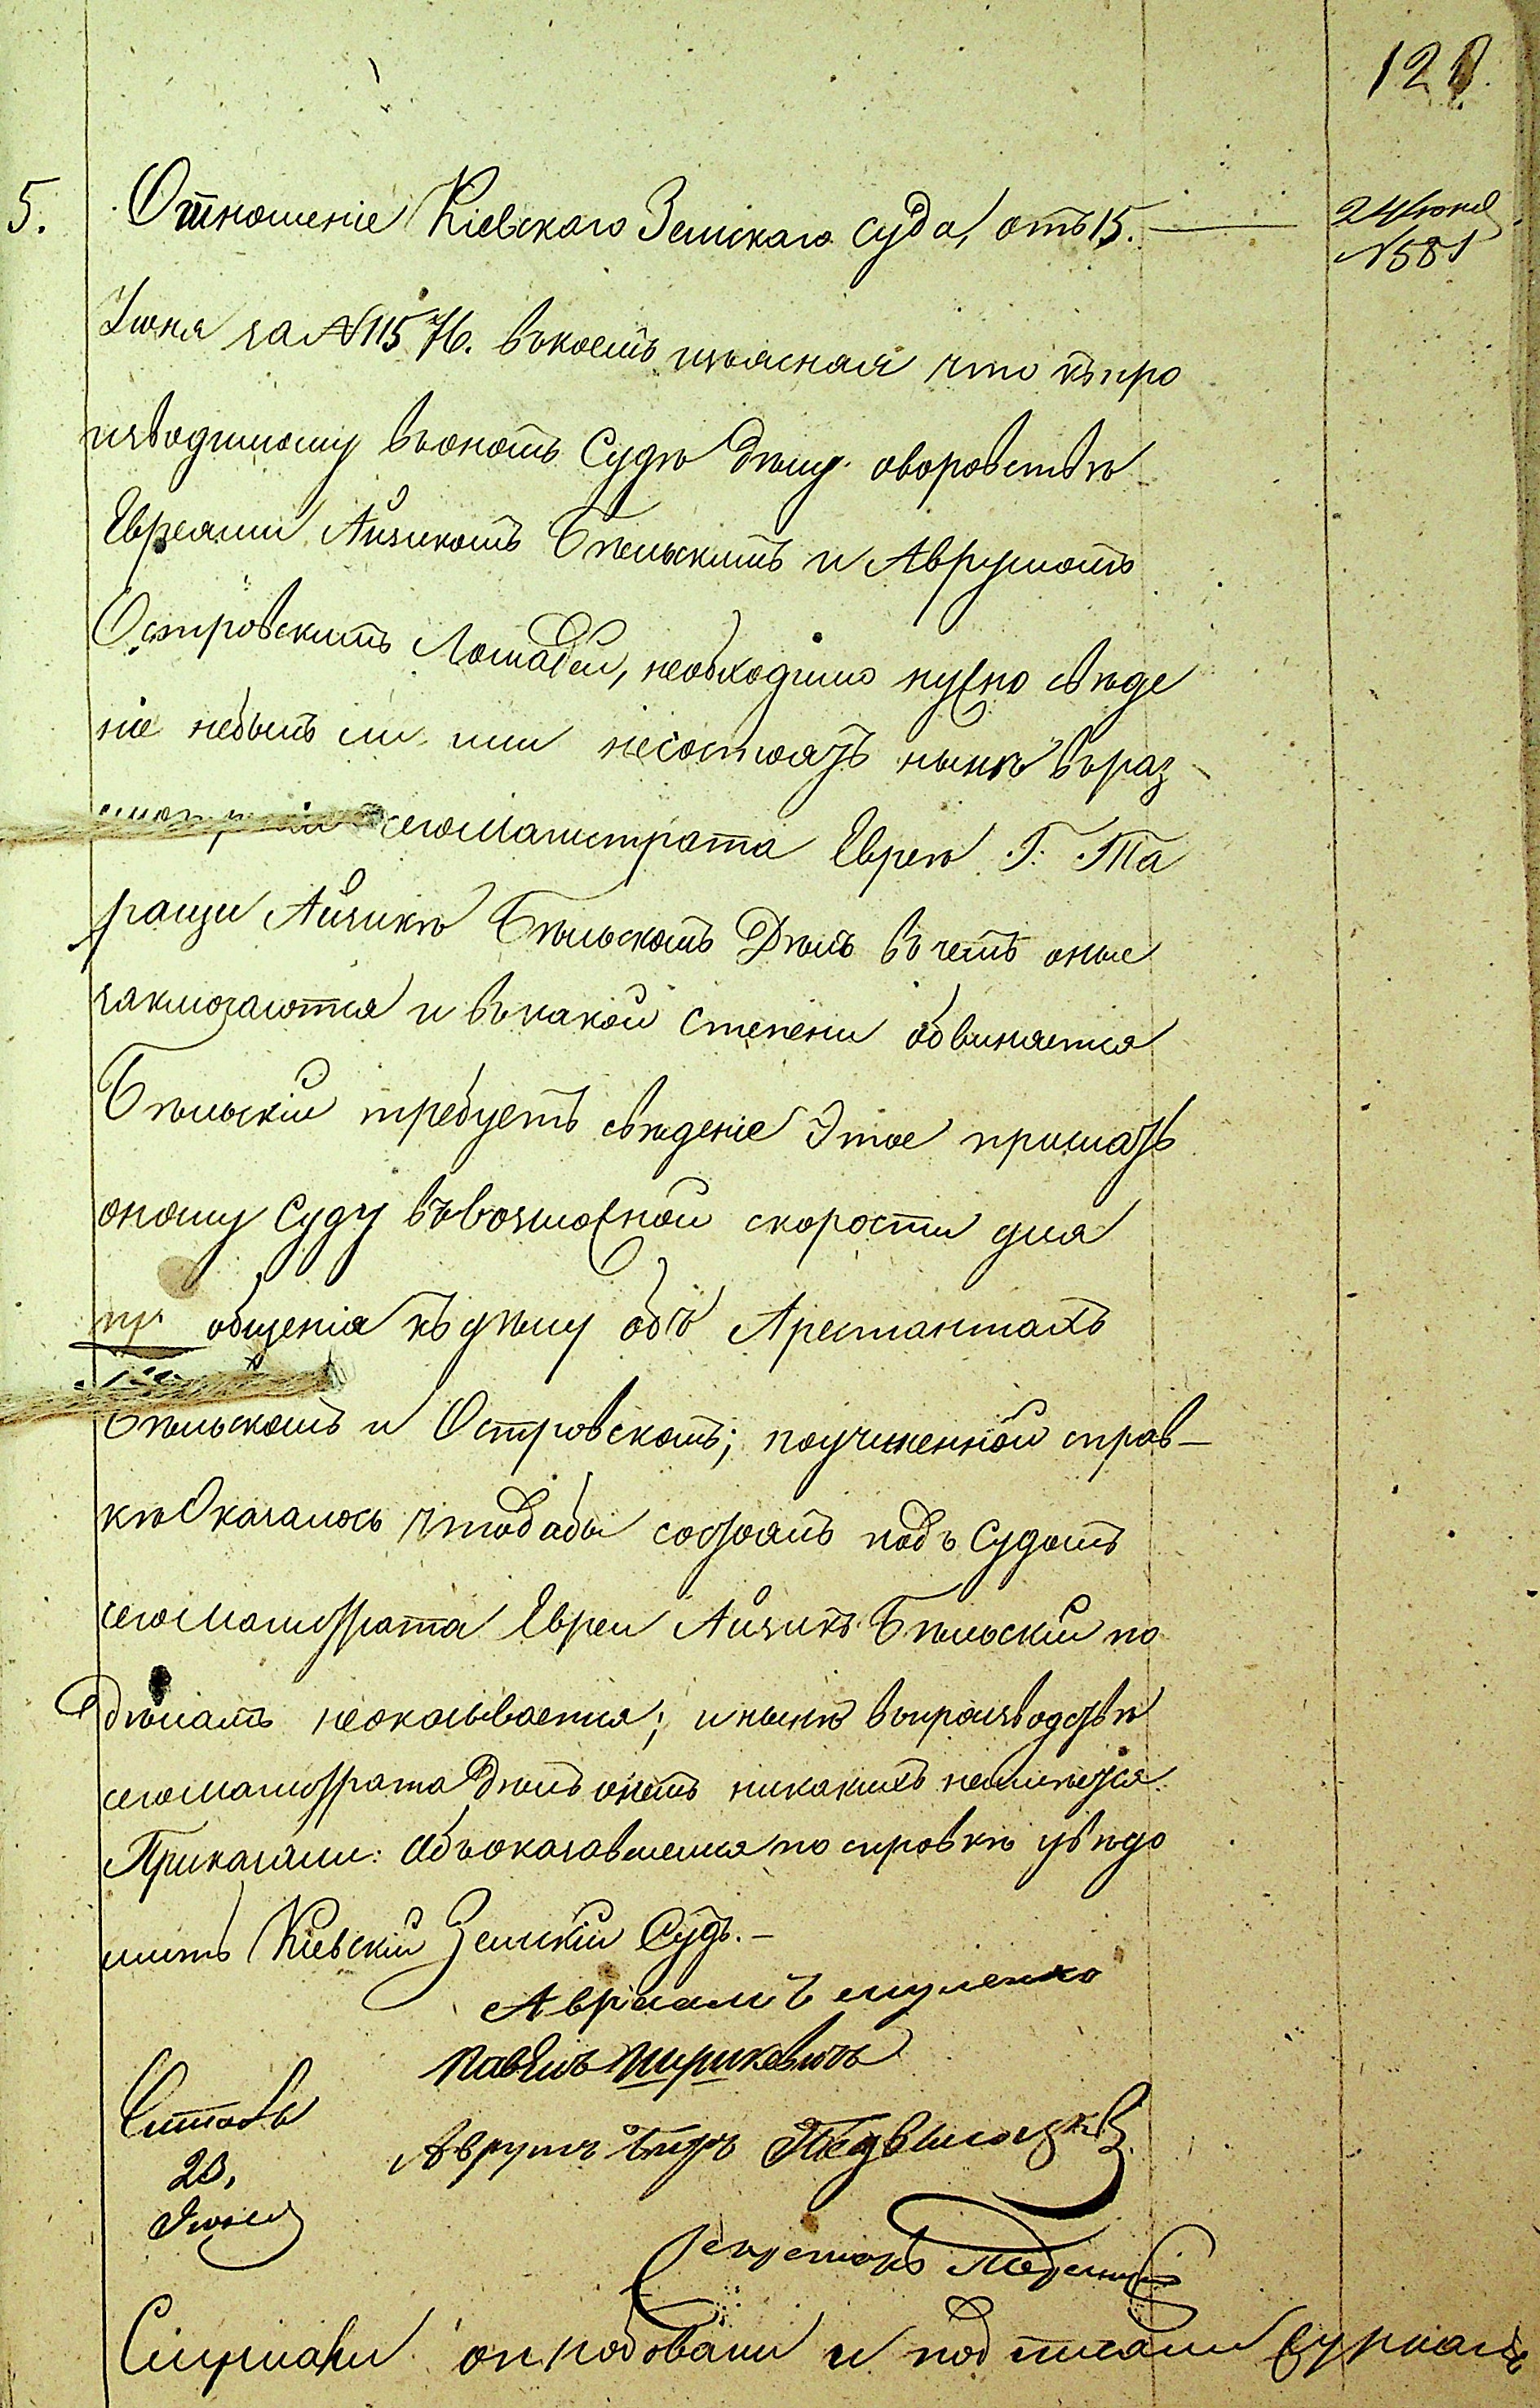 128
5. Отношеніе Кіевскаго Земскаго суда, отъ 15.
24 Іюня
№ 581
Іюня за № 11576. въ коемъ изъясняя что къ про
изводимому въ ономъ Судѣ дѣлу о воровствѣ
Евреями Айзикомъ Бѣльскимъ и Аврумомъ
Островскимъ Лошадей, необходимо нужно свѣде
ніе небылъ ли или несостоятъ нынѣ въ раз-
сего Магистрата Евреѣ Г. Та
ращи Айзикѣ Бѣльскомъ Дѣлъ въ чемъ оные
заключаются и въ какой степени обвиняется
Бѣльскій требуетъ свѣденіе Этое прислать
оному Суду въ возможной скорости для
пріобщенія къ дѣлу объ Арестантахъ
Бѣльскомъ и Островскомъ; поучиненной справ-
кѣ Оказалось чтобъ абы состоялъ подъ Судомъ
сего Магистрата Еврей Айзикъ Бѣльскій по
дѣламъ неоказывается; и нынѣ въ производствѣ
сего Магистрата Дѣлъ онемъ никакихъ неимѣется
Приказали: Объ оказавшемся по справкѣ увѣдо
мить Кіевскій Земскій Судъ.-
Авраамъ
Павелъ
Читалъ
23,
Іюня
Аврумъ
Секретарь
слушали опробовали и подписали журналъ